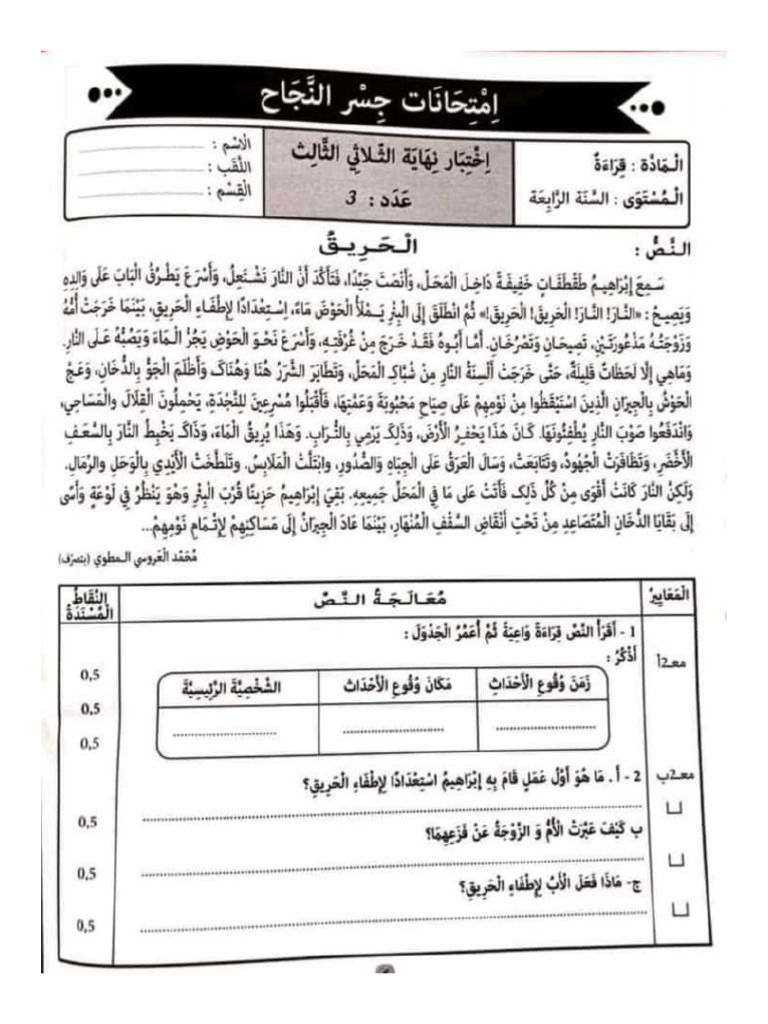 اِمْتِحَانَات جِسْر النَّجَاح
الْمَادَّة : قِرَاءَةٌ
الْمُسْتَوَى : السَّنَة الرَّابِعَة
اِخْتِبَار نِهَايَة الثُّلَاثِي الثَّالِث
عَدَد : 3
الْاِسْم :
اللَّقَب :
الْقِسْم :
النَّصُّ :
الْحَرِيقُ
سَمِعَ إِبْرَاهِيمُ طَقْطَقَاتٍ خَفِيفَةً دَاخِلَ المَحَلِّ، وَأَنْصَتَ جَيِّدًا، فَتَأَكَّدَ أَنَّ النَّارَ تَشْتَعِلُ، وَأَسْرَعَ يَطْرُقُ البَابَ عَلَى وَالِدِهِ
وَيَصِيحُ : «النَّارَ! النَّارَ! الْحَرِيقَ! الْحَرِيقَ!» ثُمَّ انْطَلَقَ إِلَى الْبِئْرِ يَمْلَأُ الْحَوْضَ مَاءً، اِسْتِعْدَادًا لِإِطْفَاءِ الْحَرِيقِ، بَيْنَمَا خَرَجَتْ أُمُّهُ
وَزَوْجَتُهُ مَذْعُورَتَيْنِ، تَصِيحَانِ وَتَصْرُخَانِ. أَمَّا أَبُوهُ فَقَدْ خَرَجَ مِنْ غُرْفَتِهِ، وَأَسْرَعَ نَحْوَ الْحَوْضِ يَجُرُّ الْمَاءَ وَيَصُبُّهُ عَلَى النَّارِ.
وَمَاهِيَ إِلَّا لَحَظَاتٌ قَلِيلَةٌ، حَتَّى خَرَجَتْ أَلْسِنَةُ النَّارِ مِنْ شُبَّاكِ الْمَحَلِّ، وَتَطَايَرَ الشَّرَرُ هُنَا وَهُنَاكَ وَأَظْلَمَ الْجَوُّ بِالدُّخَانِ، وَعَجَّ
الْحَوْشُ بِالْجِيرَانِ الَّذِينَ اسْتَيْقَظُوا مِنْ نَوْمِهِمْ عَلَى صِيَاحِ مَحْبُوبَةَ وَعَمَّتِهَا، فَأَقْبَلُوا مُسْرِعِينَ لِلنَّجْدَةِ، يَحْمِلُونَ الْقِلَالَ وَالْمَسَاحِي،
وَانْدَفَعُوا صَوْبَ النَّارِ يُطْفِئُونَهَا. كَانَ هَذَا يَحْفِرُ الْأَرْضَ، وَذَلِكَ يَرْمِي بِالتُّرَابِ. وَهَذَا يُرِيقُ الْمَاءَ، وَذَاكَ يَخْبِطُ النَّارَ بِالسَّعَفِ
الْأَخْضَرِ، وَتَظَافَرَتْ الْجُهُودُ، وَتَتَابَعَتْ، وَسَالَ الْعَرَقُ عَلَى الْجِبَاهِ وَالصُّدُورِ، وَابْتَلَّتْ الْمَلَابِسُ. وَتَلَطَّخَتْ الْأَيْدِي بِالْوَحَلِ وَالرِّمَالِ.
وَلَكِنَّ النَّارَ كَانَتْ أَقْوَى مِنْ كُلِّ ذَلِكَ فَأَتَتْ عَلَى مَا فِي الْمَحَلِّ جَمِيعِهِ. بَقِيَ إِبْرَاهِيمُ حَزِينًا قُرْبَ الْبِئْرِ وَهُوَ يَنْظُرُ فِي لَوْعَةٍ وَأَسًى
إِلَى بَقَايَا الدُّخَانِ الْمُتَصَاعِدِ مِنْ تَحْتِ أَنْقَاضِ السَّقْفِ الْمُنْهَارِ، بَيْنَمَا عَادَ الْجِيرَانُ إِلَى مَسَاكِنِهِمْ لِإِتْمَامِ نَوْمِهِمْ...
مُحَمَّد الْعَرُوسِي الْمَطْوِي (بِتَصَرُّف)
الْمَعَايِيرُ
مُعَالَجَةُ النَّصِّ
النُّقَاطُ
الْمُسْنَدَةُ
1 - أَقْرَأُ النَّصَّ قِرَاءَةً وَاعِيَةً ثُمَّ أُعَمِّرُ الْجَدْوَلَ :
أَذْكُرُ :
مع2أ
زَمَنَ وُقُوعِ الْأَحْدَاثِ
مَكَانَ وُقُوعِ الْأَحْدَاثِ
الشَّخْصِيَّةَ الرَّئِيسِيَّةَ
0,5
0,5
0,5
مع2ب
2 - أ . مَا هُوَ أَوَّلُ عَمَلٍ قَامَ بِهِ إِبْرَاهِيمُ اسْتِعْدَادًا لِإِطْفَاءِ الْحَرِيقِ؟
0,5
ب كَيْفَ عَبَّرَتْ الْأُمُّ وَ الزَّوْجَةُ عَنْ فَزَعِهِمَا؟
0,5
ج- مَاذَا فَعَلَ الْأَبُ لِإِطْفَاءِ الْحَرِيقِ؟
0,5